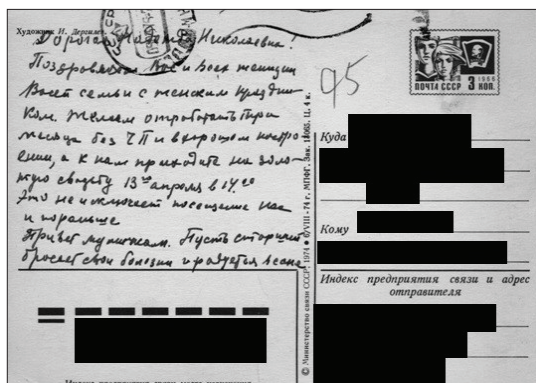 Художник И. Дергилёв
Дорогая Николаевна!
Поздравляем Вас и Всех женщин
Вашей семьи с женским праздни-
ком. Желаем отработать три
месяца без ЧП и в хорошем настро-
ении, а к нам приходите на золо-
тую свадьбу 13го апреля в 14.00
Это не исключает посещение нас
и пораньше
Привет мужикам. Пусть старший
бросает свои болезни и радуется весне
95
1966
ПОЧТА СССР 3 КОП.
Куда
Кому
Индекс предприятия связи и адрес
отправителя
© Министерство связи СССР, 1974 • 6/VIII-74 г. МПФГ. Зак. 15065. Ц. 4 к.